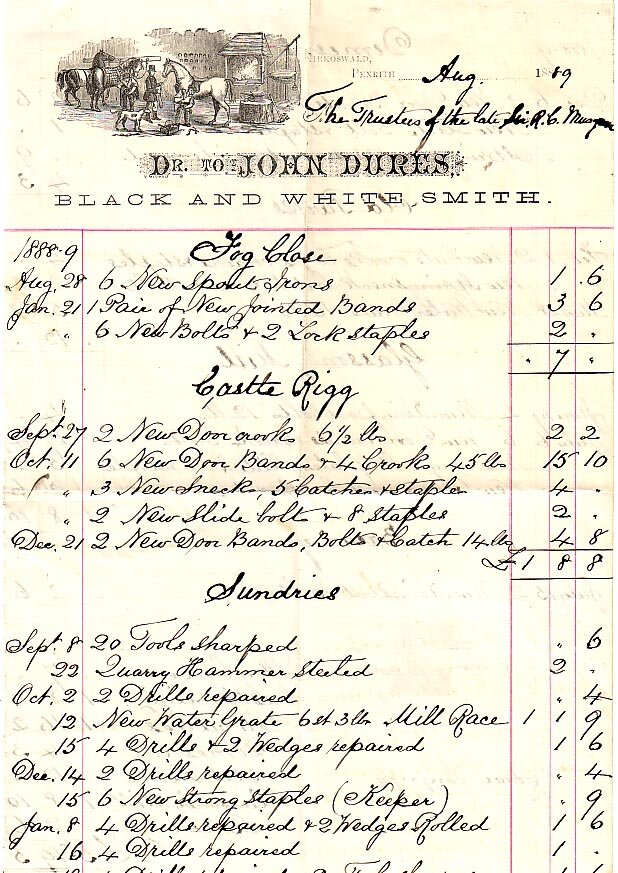 KIRKOSWALD,
PENRITH Aug. 1889
The Trustees of the late Sir. R. C. Musgrave
DR. TO JOHN DURES,
BLACK AND WHITE SMITH.
1888-9 Fog Close
Aug. 28 6 New Spout Irons 1 . 6
Jan. 21 1 Pair of New Jointed Bands 3 6
" 6 New Bolts & 2 Lock staples 2 "
" 7 "
Castle Rigg
Sept. 27 2 New Door crooks 6½ lbs 2 2
Oct. 11 6 New Door Bands & 4 Crooks 45 lbs 15 10
" 3 New Snecks, 5 Catches & staples 4 "
" 2 New Slide bolts & 8 Staples 2 "
Dec. 21 2 New Door Bands, Bolts & Catch 14 lbs 4 8
£ 1 8 8
Sundries
Sept. 8 20 Tools sharped " 6
22 Quarry Hammer steeled 2 "
Oct. 2 2 Drills repaired " 4
12 New Water Grate 6 st 3 lbs Mill Race 1 1 9
15 4 Drills & 2 Wedges repaired 1 6
Dec. 14 2 Drills repaired " 4
15 6 New Strong Staples (Keeper) " 9
Jan. 8 4 Drills repaired & 2 Wedges Rolled 1 6
16 4 Drills repaired 1 "